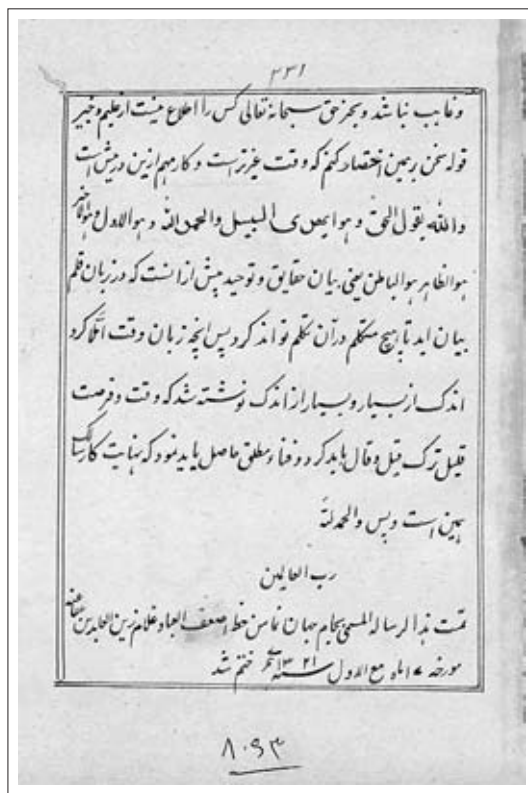 ۲۳۱
و غایب نباشد و بجز حق سبحانه تعالی کس را اطلاع نیست از علیم و خبیر
قوله سخن برہمین اختصار کنم که وقت عزیز است و کار مہم ازین در پیش است
والله یقول الحق و هو ایهدی السبیل والحمد لله و هو الاول و هو الاخر
هو الظاہر ہو الباطن یعنی بیان حقایق و توحید بیش از انست که در زبان قلم
بیان اید تا ہیچ متکلم در آن تکلم تواند کرد پس انچه زبان وقت املا کرد
اندک از بسیار و بسیار از اندک نوشته شد که وقت و فرصت
قلیل ترک قیل و قال باید کرد و فناء مطلق حاصل باید نمود که نهایت کار سالک
ہمین است و بس والحمد لله
رب العالمین
تمت ہذا الرساله المسمی بجام جهان نما من خط اضعف العباد غلام زین العابدین
مورخه ۱۷ ماه الاول سنه ۱۳۲۱ ختم شد
۸۰۹۳